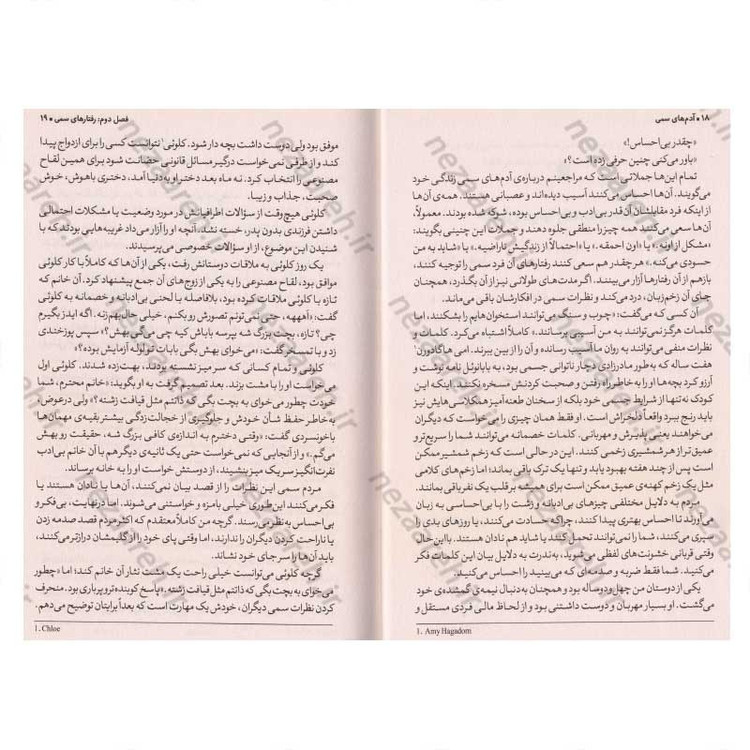 ۱۸ • آدم‌های سمی
«چقدر بی‌احساس!»
«باور می‌کنی چنین حرفی زده است؟»
تمام این‌ها جملاتی است که مراجعینم درباره‌ی آدم‌های سمی زندگی خود
می‌گویند. آن‌ها احساس می‌کنند آسیب دیده‌اند و عصبانی هستند. همه‌ی آن‌ها
از اینکه فرد مقابلشان آن قدر بی‌ادب و بی‌احساس بوده، شوکه شده بودند. معمولاً،
آن‌ها سعی می‌کنند همه چیز را منطقی جلوه دهند و جملات این چنینی بگویند:
«مشکل از اونه.» یا «اون احمقه.» یا «احتمالاً از زندگیش ناراضیه.» یا «شاید به من
حسودی می‌کنه.» هر چقدر هم سعی کنند رفتارهای آن فرد سمی را توجیه کنند،
باز هم از آن رفتارها آزار می‌بینند. اگر مدت‌های طولانی نیز از آن بگذرد، همچنان
جای آن زخم‌زبان، درد می‌کند و نظرات سمی در افکارشان باقی می‌ماند.
آن کسی که می‌گفت: «چوب و سنگ می‌توانند استخوان‌هایم را بشکنند، اما
کلمات هرگز نمی‌توانند به من آسیبی برسانند.» کاملاً اشتباه می‌کرد. کلمات و
نظرات منفی می‌توانند به روان ما آسیب رسانده و آن را از بین ببرند. امی هاگادورن¹
هفت ساله که به‌طور مادرزادی دچار ناتوانی جسمی بود، به بابانوئل نامه نوشت و
آرزو کرد بچه‌ها او را به خاطر راه رفتن و صحبت کردنش مسخره نکنند. اینکه این
کودک نه‌تنها از شرایط جسمی خود بلکه از سخنان طعنه‌آمیز همکلاسی‌هایش نیز
باید رنج ببرد واقعاً دلخراش است. او فقط همان چیزی را می‌خواست که دیگران
می‌خواهند یعنی پذیرش و مهربانی. کلمات خصمانه می‌توانند شما را سریع‌تر و
عمیق‌تر از هر شمشیری زخمی کنند. این در حالی است که زخم شمشیر ممکن
است پس از چند هفته بهبود یابد و تنها یک ترک باقی بماند؛ اما زخم‌های کلامی
مثل یک زخم کهنه‌ی عمیق ممکن است برای همیشه بر قلب یک نفر باقی بمانند.
مردم به دلایل مختلفی چیزهای بی‌ادبانه و زشت را با بی‌احساسی به زبان
می‌آورند تا احساس بهتری پیدا کنند، چراکه حسادت می‌کنند، یا روزهای بدی را
سپری می‌کنند، شما را نمی‌توانند تحمل کنند یا شاید هم نادان هستند. با این حال
وقتی قربانی خشونت‌های لفظی می‌شوید، به‌ندرت به دلایل بیان این کلمات فکر
می‌کنید. شما فقط ضربه و صدمه‌ای که می‌بینید را احساس می‌کنید.
یکی از دوستان من چهل و دو ساله بود و همچنان به‌دنبال نیمه‌ی گمشده‌ی خود
می‌گشت. او بسیار مهربان و دوست داشتنی بود و از لحاظ مالی فردی مستقل و
1. Amy Hagadorn
فصل دوم: رفتارهای سمی • ۱۹
موفق بود ولی دوست داشت بچه دار شود. کلوئی¹ نتوانست کسی را برای ازدواج پیدا
کند و از طرفی نمی‌خواست درگیر مسائل قانونی حضانت شود برای همین لقاح
مصنوعی را انتخاب کرد. نه ماه بعد دختر او به دنیا آمد. دختری باهوش، خوش
صحبت، جذاب و زیبا.
کلوئی هیچ‌وقت از سؤالات اطرافیانش در مورد وضعیت یا مشکلات احتمالی
داشتن فرزندی بدون پدر، خسته نشد. آنچه او را آزار می‌داد غریبه‌هایی بودند که با
شنیدن این موضوع، از او سؤالات خصوصی می‌پرسیدند.
یک روز کلوئی به ملاقات دوستانش رفت، یکی از آن‌ها که کاملاً با کار کلوئی
موافق بود، لقاح مصنوعی را به یکی از زوج‌های آن جمع پیشنهاد کرد. آن خانم که
تازه با کلوئی ملاقات کرده بود، بلافاصله با لحنی بی‌ادبانه و خصمانه به کلوئی
گفت: «آهههه، حتی نمی‌تونم تصورش رو بکنم، خیلی حال‌بهم‌زنه. اگه ایدز بگیرم
چی؟ تازه، بچت بزرگ شه بپرسه باباش کیه چی می‌گی بهش؟» سپس پوزخندی
زد و با تمسخر گفت: «می‌خوای بهش بگی بابات تو لوله آزمایش بوده؟»
کلوئی و تمام کسانی که سر میز نشسته بودند، بهت‌زده شدند. کلوئی اول
می‌خواست او را با مشت بزند. بعد تصمیم گرفت به او بگوید: «خانم محترم، شما
خودت چطور می‌خوای به بچت بگی که ذاتتم مثل قیافت زشته؟» ولی درعوض،
به‌خاطر حفظ شأن خودش و جلوگیری از خجالت‌زدگی بیشتر بقیه‌ی مهمان‌ها
با خونسردی گفت: «وقتی دخترم به اندازه‌ی کافی بزرگ شه، حقیقت رو بهش
می‌گم.» و از آنجایی که نمی‌خواست حتی یک ثانیه‌ی دیگر هم با آن خانم بی‌ادب
نفرت‌انگیز سر یک میز بنشیند، از دوستش خواست او را به خانه برساند.
مردم سمی این نظرات را از قصد بیان نمی‌کنند، آن‌ها یا نادان هستند یا
فکر می‌کنند این‌طوری خیلی بامزه و خواستنی می‌شوند. اما در نهایت، بی‌فکر و
بی‌احساس به‌نظر می‌رسند. گرچه من کاملاً معتقدم که اکثر مردم قصد صدمه زدن
یا ناراحت کردن دیگران را ندارند، اما وقتی پای خود را از گلیمشان درازتر می‌کنند،
باید آن‌ها را سر جای خود نشاند.
گرچه کلوئی می‌توانست خیلی راحت یک مشت نثار آن خانم کند؛ اما «چطور
می‌خوای به بچت بگی که ذاتتم مثل قیافت زشته.» پاسخ کوبنده‌تر و پرباری بود. منحرف
کردن نظرات سمی دیگران، خودش یک مهارت است که بعداً برایتان توضیح می‌دهم.
1. Chloe
nezaareh.ir